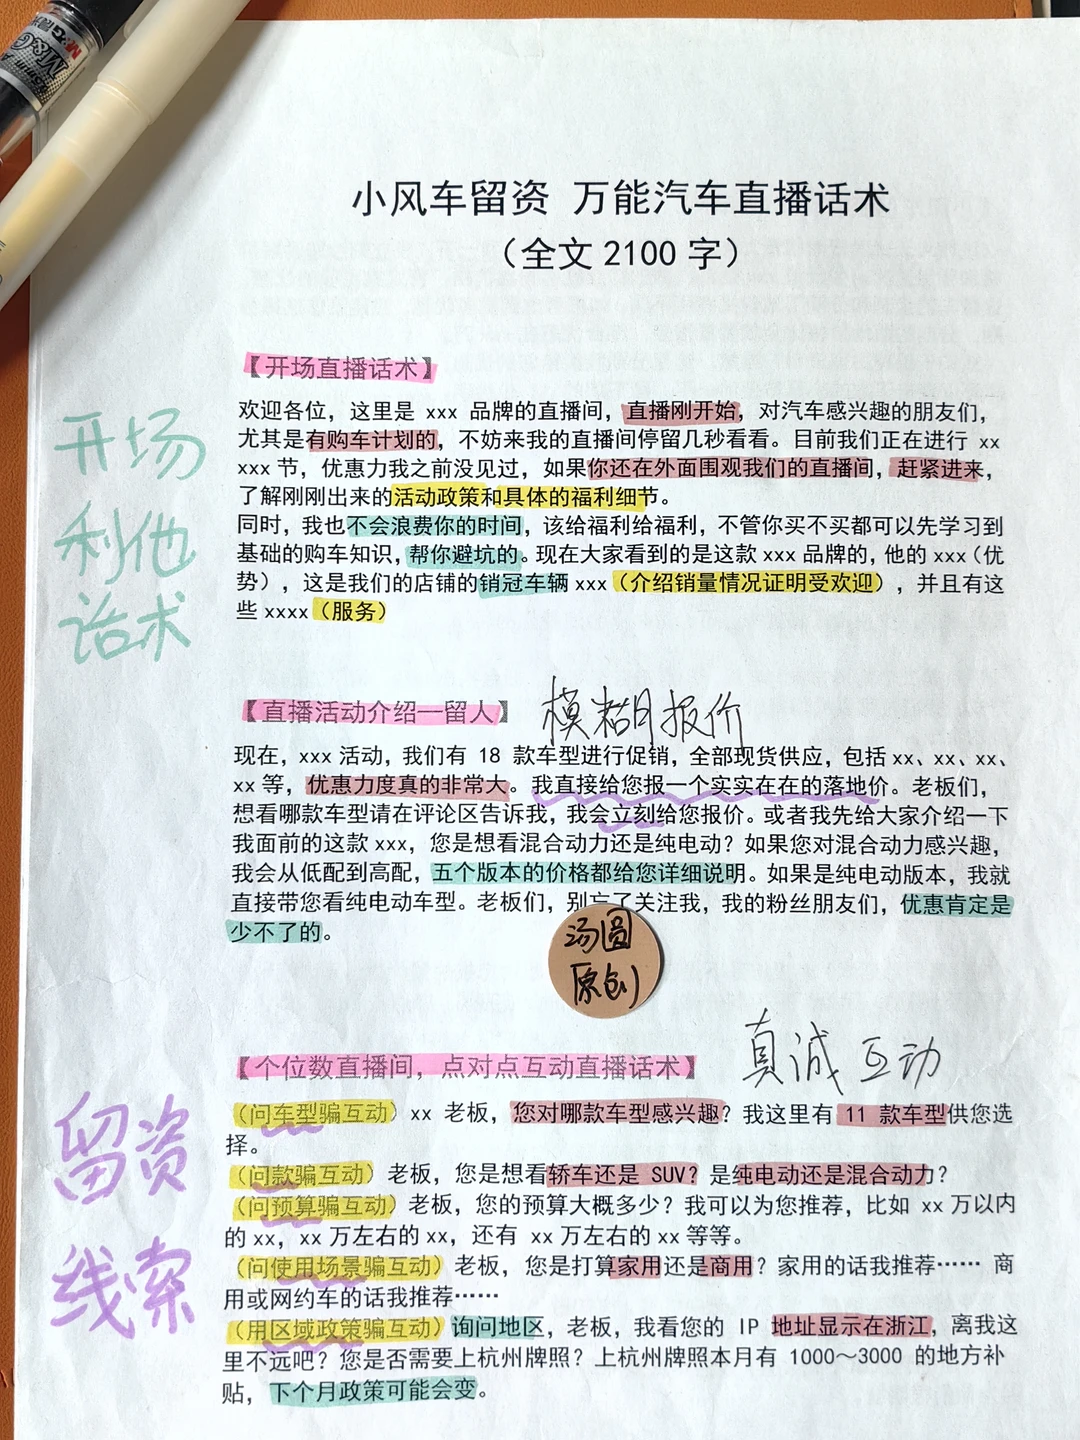 M&G
小风车留资 万能汽车直播话术
（全文2100字）
【开场直播话术】
开场
利他
话术
欢迎各位，这里是 xxx 品牌的直播间，直播刚开始，对汽车感兴趣的朋友们，
尤其是有购车计划的，不妨来我的直播间停留几秒看看。目前我们正在进行 xx
xxx 节，优惠力我之前没见过，如果你还在外面围观我们的直播间，赶紧进来，
了解刚刚出来的活动政策和具体的福利细节。
同时，我也不会浪费你的时间，该给福利给福利，不管你买不买都可以先学习到
基础的购车知识，帮你避坑的。现在大家看到的是这款 xxx 品牌的，他的 xxx（优
势），这是我们的店铺的销冠车辆 xxx（介绍销量情况证明受欢迎），并且有这
些 xxxx（服务）
【直播活动介绍—留人】
模糊报价
现在，xxx 活动，我们有 18 款车型进行促销，全部现货供应，包括 xx、xx、xx、
xx 等，优惠力度真的非常大。我直接给您报一个实实在在的落地价。老板们，
想看哪款车型请在评论区告诉我，我会立刻给您报价。或者我先给大家介绍一下
我面前的这款 xxx，您是想看混合动力还是纯电动？如果您对混合动力感兴趣，
我会从低配到高配，五个版本的价格都给您详细说明。如果是纯电动版本，我就
直接带您看纯电动车型。老板们，别忘了关注我，我的粉丝朋友们，优惠肯定是
少不了的。
汤圆
原创
【个位数直播间，点对点互动直播话术】
真诚互动
留资
线索
（问车型骗互动）xx 老板，您对哪款车型感兴趣？我这里有 11 款车型供您选
择。
（问款骗互动）老板，您是想看轿车还是 SUV？是纯电动还是混合动力？
（问预算骗互动）老板，您的预算大概多少？我可以为您推荐，比如 xx 万以内
的 xx，xx 万左右的 xx，还有 xx 万左右的 xx 等等。
（问使用场景骗互动）老板，您是打算家用还是商用？家用的话我推荐…… 商
用或网约车的话我推荐……
（用区域政策骗互动）询问地区，老板，我看您的 IP 地址显示在浙江，离我这
里不远吧？您是否需要上杭州牌照？上杭州牌照本月有 1000～3000 的地方补
贴，下个月政策可能会变。